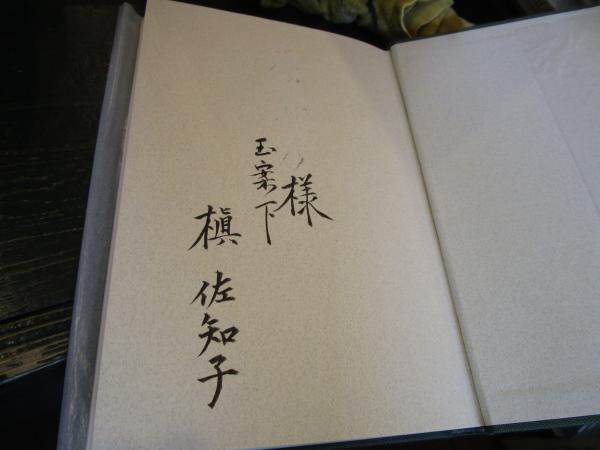 様
玉案下
槇 佐知子